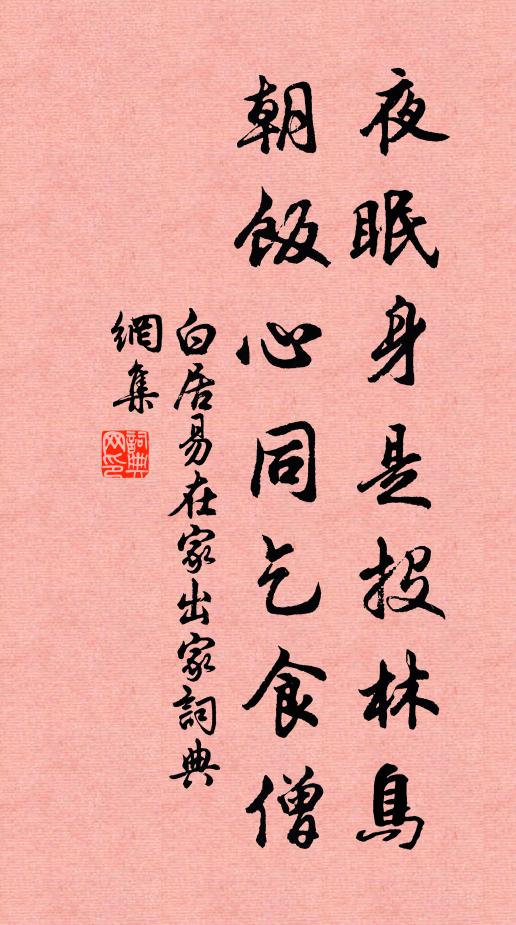 夜眠身是投林鳥
朝飯心同乞食僧
白居易在家出家詞典
網集
詞典網印